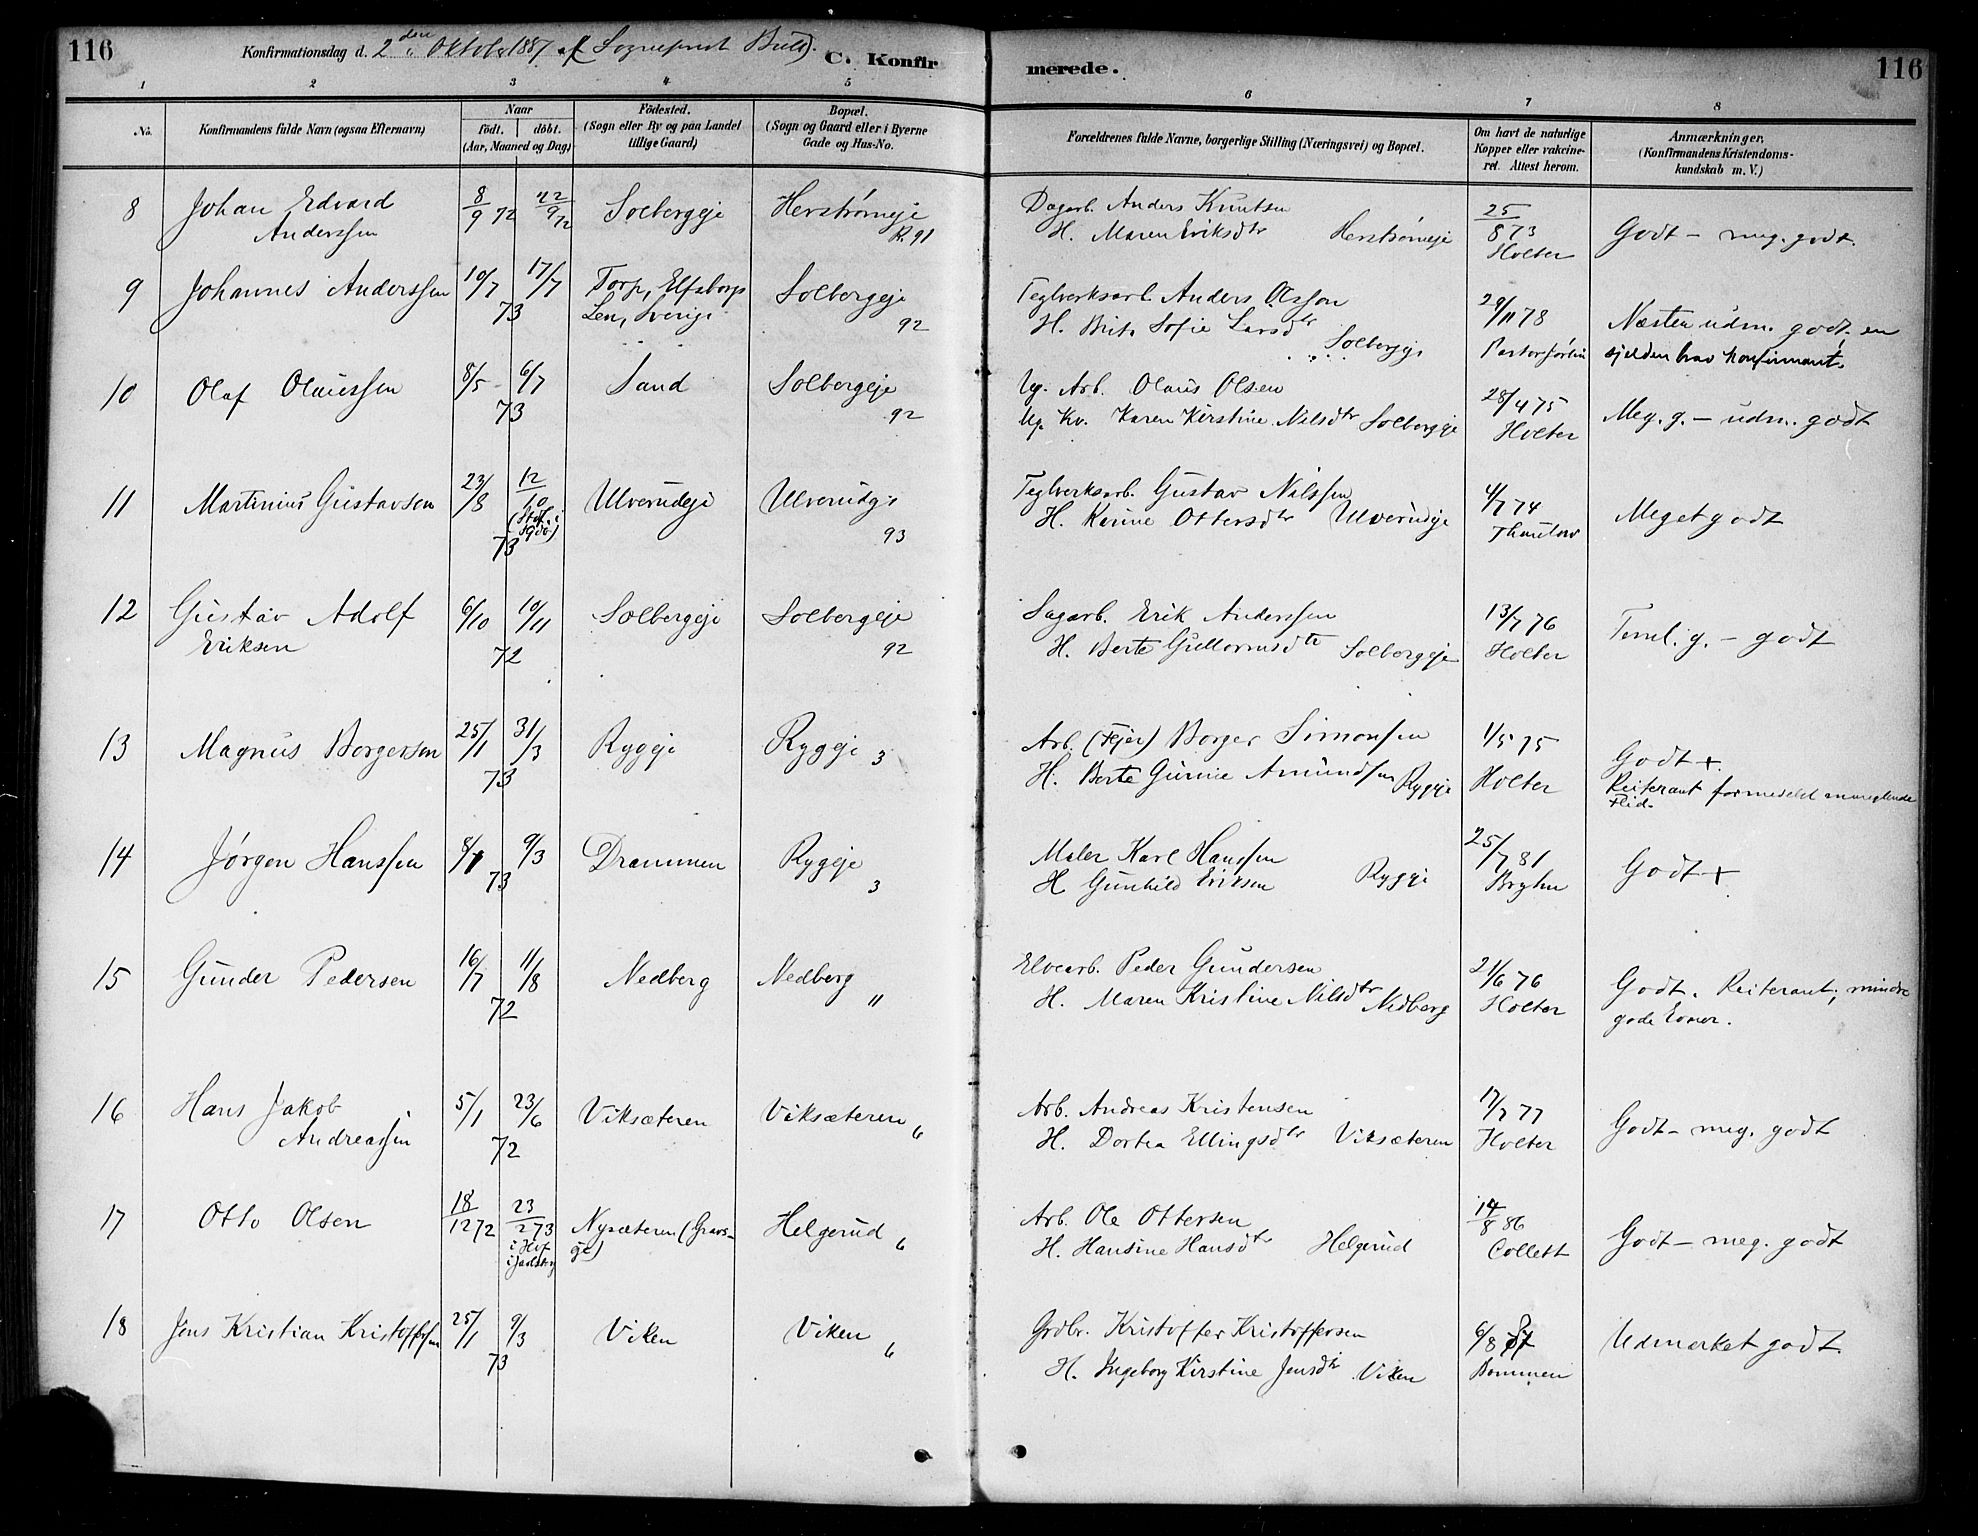 116
Konfirmationsdag d. 2den Oktober 1887 af Sogneprest
C. Konfirmerede.
116
1 2 3 4 5 6 7 8
No.
Konfirmandens fulde Navn (ogsaa Efternavn)
Naar
födt. döbt.
(Aar, Maaned og Dag)
Födested.
(Sogn eller By og paa Landet
tillige Gaard)
Bopæl.
(Sogn og Gaard eller i Byerne
Gade og Hus-No.
Forældrenes fulde Navne, borgerlige Stilling (Næringsvei) og Bopæl.
Om havt de naturlige
Kopper eller vakcine-
ret. Attest herom.
Anmærkninger,
(Konfirmandens Kristendoms-
kundskab m. V.)
8 Johan Edvard Anderssen 8/9 72 22/9 72 Solbergeje Herstrømeje R. 91
Dagarb. Anders Knutsen
H. Maren Eriksdtr Herstrømeje 25/8 73 Holter Godt – meg. godt.
9 Johannes Anderssen 10/7 17/7 73 Torp, Elfsborgs Len, Sverige Solbergeje 92
Teglverksarb. Anders Olsson
H. Brita Sofie Larsdtr Solbergeje 29/11 78 Næsten udm. godt, en
sjelden brav konfirmant.
10 Olaf Olaussen 8/5 6/7 73 Sand Solbergeje 92
Ug. Arb. Olaus Olsen
Ug. Kv. Karen Kirstine Nilsdtr Solbergeje 28/4 75 Holter Meg. g. – udm. godt
11 Martinius Gustavsen 23/8 12/10 73 Ulverudeje Ulverudeje 93
Teglverksarb. Gustav Nilssen
H. Karine Ottersdtr Ulverudeje 4/7 74 Thaulow Meget godt
12 Gustav Adolf Eriksen 6/10 10/11 72 Solbergeje Solbergeje 92
Sagarb. Erik Anderssen
H. Berte Gulbrandsdtr Solbergeje 13/7 76 Holter Teml. g. – godt
13 Magnus Borgersen 25/1 31/3 73 Ryggeje Ryggeje 3
Arb. (Ejer) Borger Simonsen
H. Berte Gurine Amundsen Ryggeje 1/5 75 Holter Godt +.
Reiterant formedelst manglende
Flid.
14 Jørgen Hanssen 8/1 9/3 73 Drammen Ryggeje 3
Maler Karl Hanssen
H Gunhild Eriksen Ryggeje 25/7 81 Bryhn Godt +
15 Gunder Pedersen 16/7 11/8 72 Nedberg Nedberg "
Elvearb. Peder Gundersen
H. Maren Kristine Nilsdtr Nedberg 21/6 76 Holter Godt. Reiterant; mindre
gode Evner.
16 Hans Jakob Andreassen 5/1 23/6 72 Viksæteren Viksæteren 6
Arb. Andreas Kristensen
H. Dortea Ellingsdtr Viksæteren 17/7 77 Holter Godt – meg. godt
17 Otto Olsen 18/12 72 23/2 73 i Hof i Jarlsberg Nysæteren (Gravs-eje) Helgerud 6
Arb. Ole Ottersen
H. Hansine Hansdtr Helgerud 14/8 86 Collett Godt – meg. godt
18 Jens Kristian Kristoffersen 25/1 9/3 73 Viken Viken 6
Grdbr. Kristoffer Kristoffersen
H. Ingeborg Kirstine Jensdtr Viken 6/8 Bommen Udmerket godt.